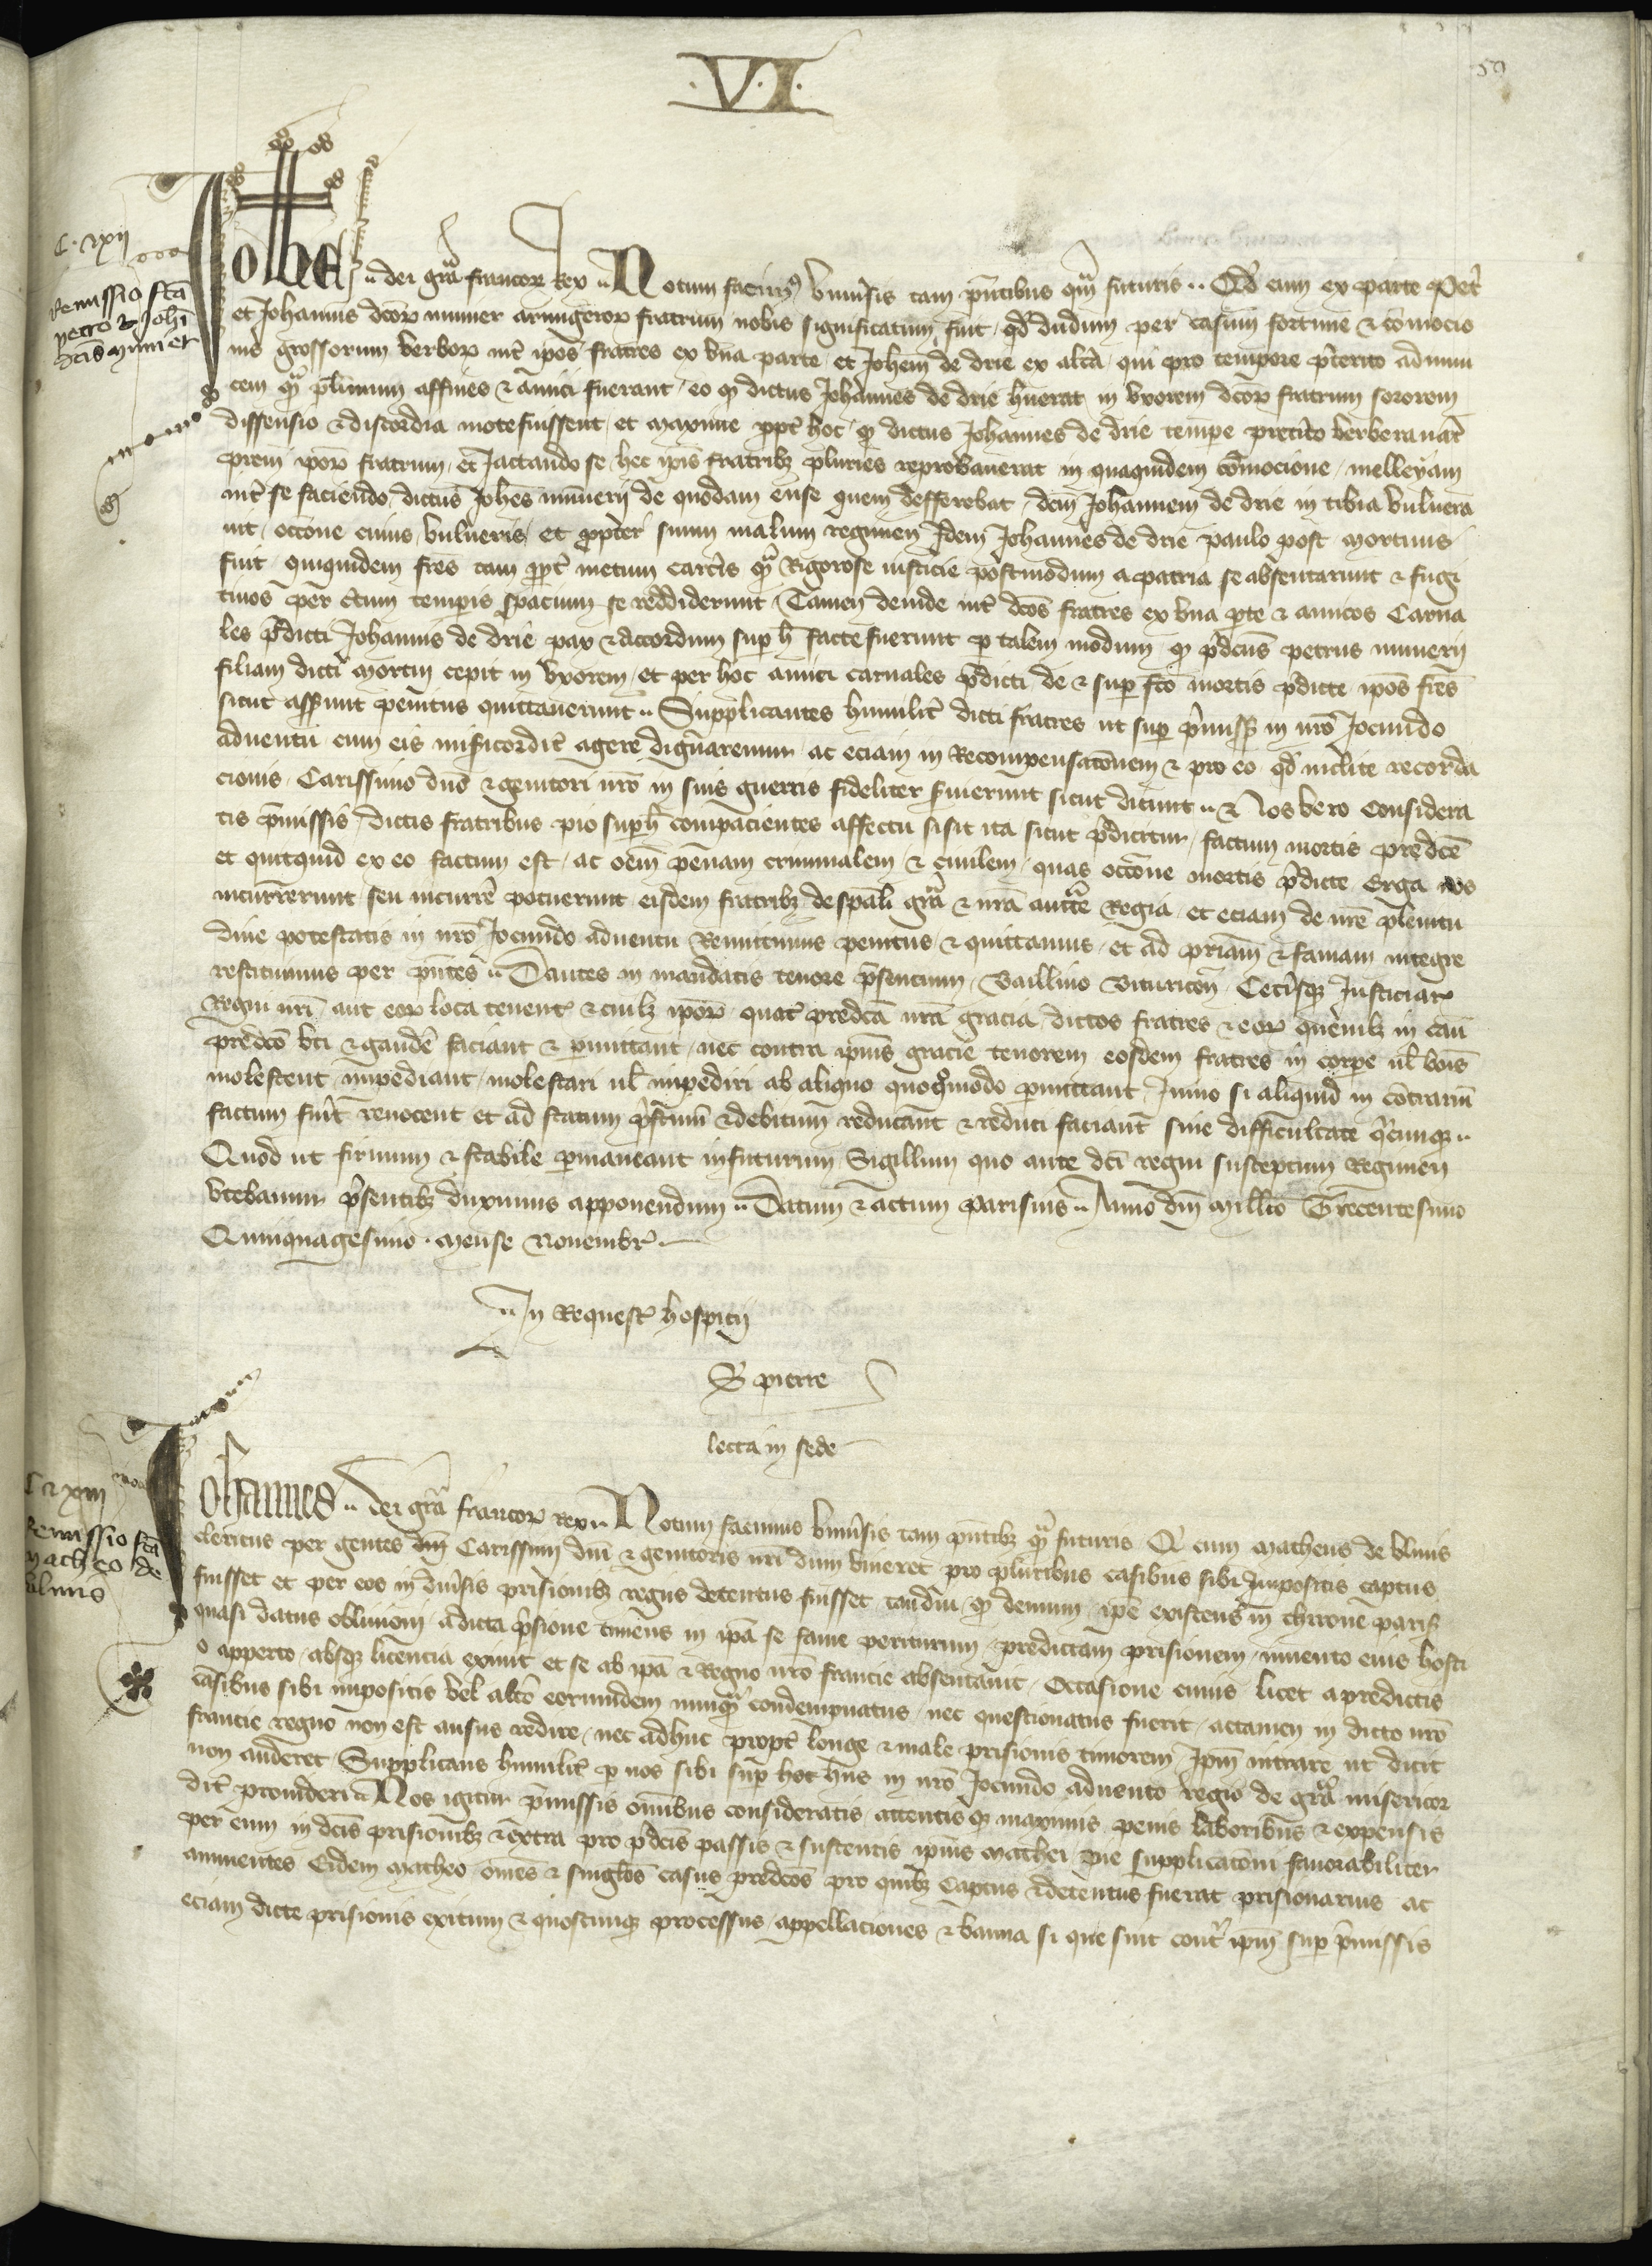 .V.I.
59
C. xxii
Remissio fcā
petro & Johi
dcis munier
Johes dei grā francor Rex Notum facim9 vniūsis tam pn̄tibus qm̄ futuris Qd cum ex parte Pet
et Johannis dcor munier armigeror fratrum nobis significatum fuit qd dudum per casum fortune & cōmocio
nis grossorum verbor int ipos fratres ex vna parte et Johem de drie ex altā qui pro tempore pterito adinui
cem qm plimum affines & amici fuerant eo q dictus Johannes de drie huerat in vxorem dcor fratrum sororem
dissensio & discordia mote fuissent et maxime ppt hoc q dictus Johannes de drie tempe preito verberauāt
prem ipor fratrum et Jactando se hec ipis fratribz pluries reprobauerat in quaquidem cōmocione melleyam
int se faciendo dictus Johes munerii de quodam ense quem defferebat dcm Johannem de drie in tibia vulnera
uit occone cuius vulneris et propter suum malum regimen Idem Johannes de drie paulo post mortuus
fuit quiquidem fres tam ppt metum carcis qm Rigorose iusticie postmodum a patria se absentarunt & fugi
tiuos per ctum tempis spacium se reddiderunt Tamen deinde int dcos fratres ex vna pte & amicos Carna
les pdicti Johannis de drie pax & accordum sup h facte fuerunt p talem modum q pdcus petrus munerii
filiam dicti mortui cepit in vxorem et per hoc amici carnales pdicti de & sup fco mortis pdicte ipos fres
sicut asserunt penitus quittauerunt Supplicantes humilit dicti fratres ut sup pmiss in nro Jocundo
aduentu cum eis misicordit agere dignaremur ac eciam in Recompensacōnem & pro eo qd inclite recorda
cionis Carissimo dno & genitori nro in suis guerris fideliter suierunt sicut dicunt & Nos vero considera
tis pmissis dictis fratribus pio sup h compacientes affectu si sit ita sicut pdicitur factum mortis predce
et quitquid ex eo factum est ac oem penam criminalem & ciuilem quas occone mortis pdicte Erga nos
incurrerunt seu incurre potuerunt eisdem fratribz de spali grā & nrā auctte Regia et eciam de nre plenitu
dine potestatis in nro Jocundo aduentu Remittimus penitus & quittamus et ad priam & famam integre
restituimus per pntes Dantes in mandatis tenore psencium Baillino Bituricen Cetisqz Justiciar
Regni nri aut eor loca tenent & cuilz ipor quat predcā nrā gracia dictos fratres & eor quemlz in cau
predco vti & gaude faciant & pmittant nec contra ipius gracie tenorem eosdem fratres in corpe ul bois
molestent impediant molestari ul impediri ab aliquo quoqmodo pmittant Immo si aliquid in cōtrariū
factum fuit reuocent et ad statum pstinū & debitum reducant & reduci faciant sine difficultate qcunqz
Quod ut firmum & stabile pmaneant infuturum Sigillum quo ante dci regni susceptum Regimen
vtebamur psentibz duximus apponendum Datum & actum Parisius Anno dni millo Trecentesimo
Quinquagesimo mense Nouembr
In Request hospicij
S pierre
lecta in sede
C xxiii
Remissio fcā
matheo de
vlmis
Johannes dei grā francor rex Notum facimus vniusis tam pntibz qm futuris Q cum Matheus de vlmis
clericus per gentes dni Carissimi dni & genitoris nri dum viueret pro pluribus casibus sibi Impositis captus
fuisset et per eos in diusis prisionibz regiis detentus fuisset tamdiu q demum ipe existens in thrrone paris
quasi datus obliuioni a dicta psione timens in ipa se fame periturum predictam prisionem inuento eius hosti
o apperto absqz licencia exiuit et se ab ipa & Regno nro francie absentauit Occasione cuius licet a predictis
casibus sibi impositis vel alto eorumdem nunqm condempnatus nec questionatus fuerit actamen in dicto nro
francie regno non est ausus redire nec adhuc propt longe & male prisionis timorem Ipm intrare ut dicit
non auderet Supplicans humilit p nos sibi sup hoc hns in nro Jocundo aduento regio de grā misericor
dit prouideri Nos igitur pmissis omibus consideratis attentisqz maximis penis laboribus & expensis
per eum in dcis prisionibz & extra pro pdcis passis & sustentis ipius Mathei pie supplicacōni fauorabiliter
annuentes Eidem Matheo omes & singlos casus predcos pro quibz captus & detentus fuerat prisionarius ac
eciam dicte prisionis exitum & quoscunqz processus appellaciones & banna si que sint cont ipm sup pmissis